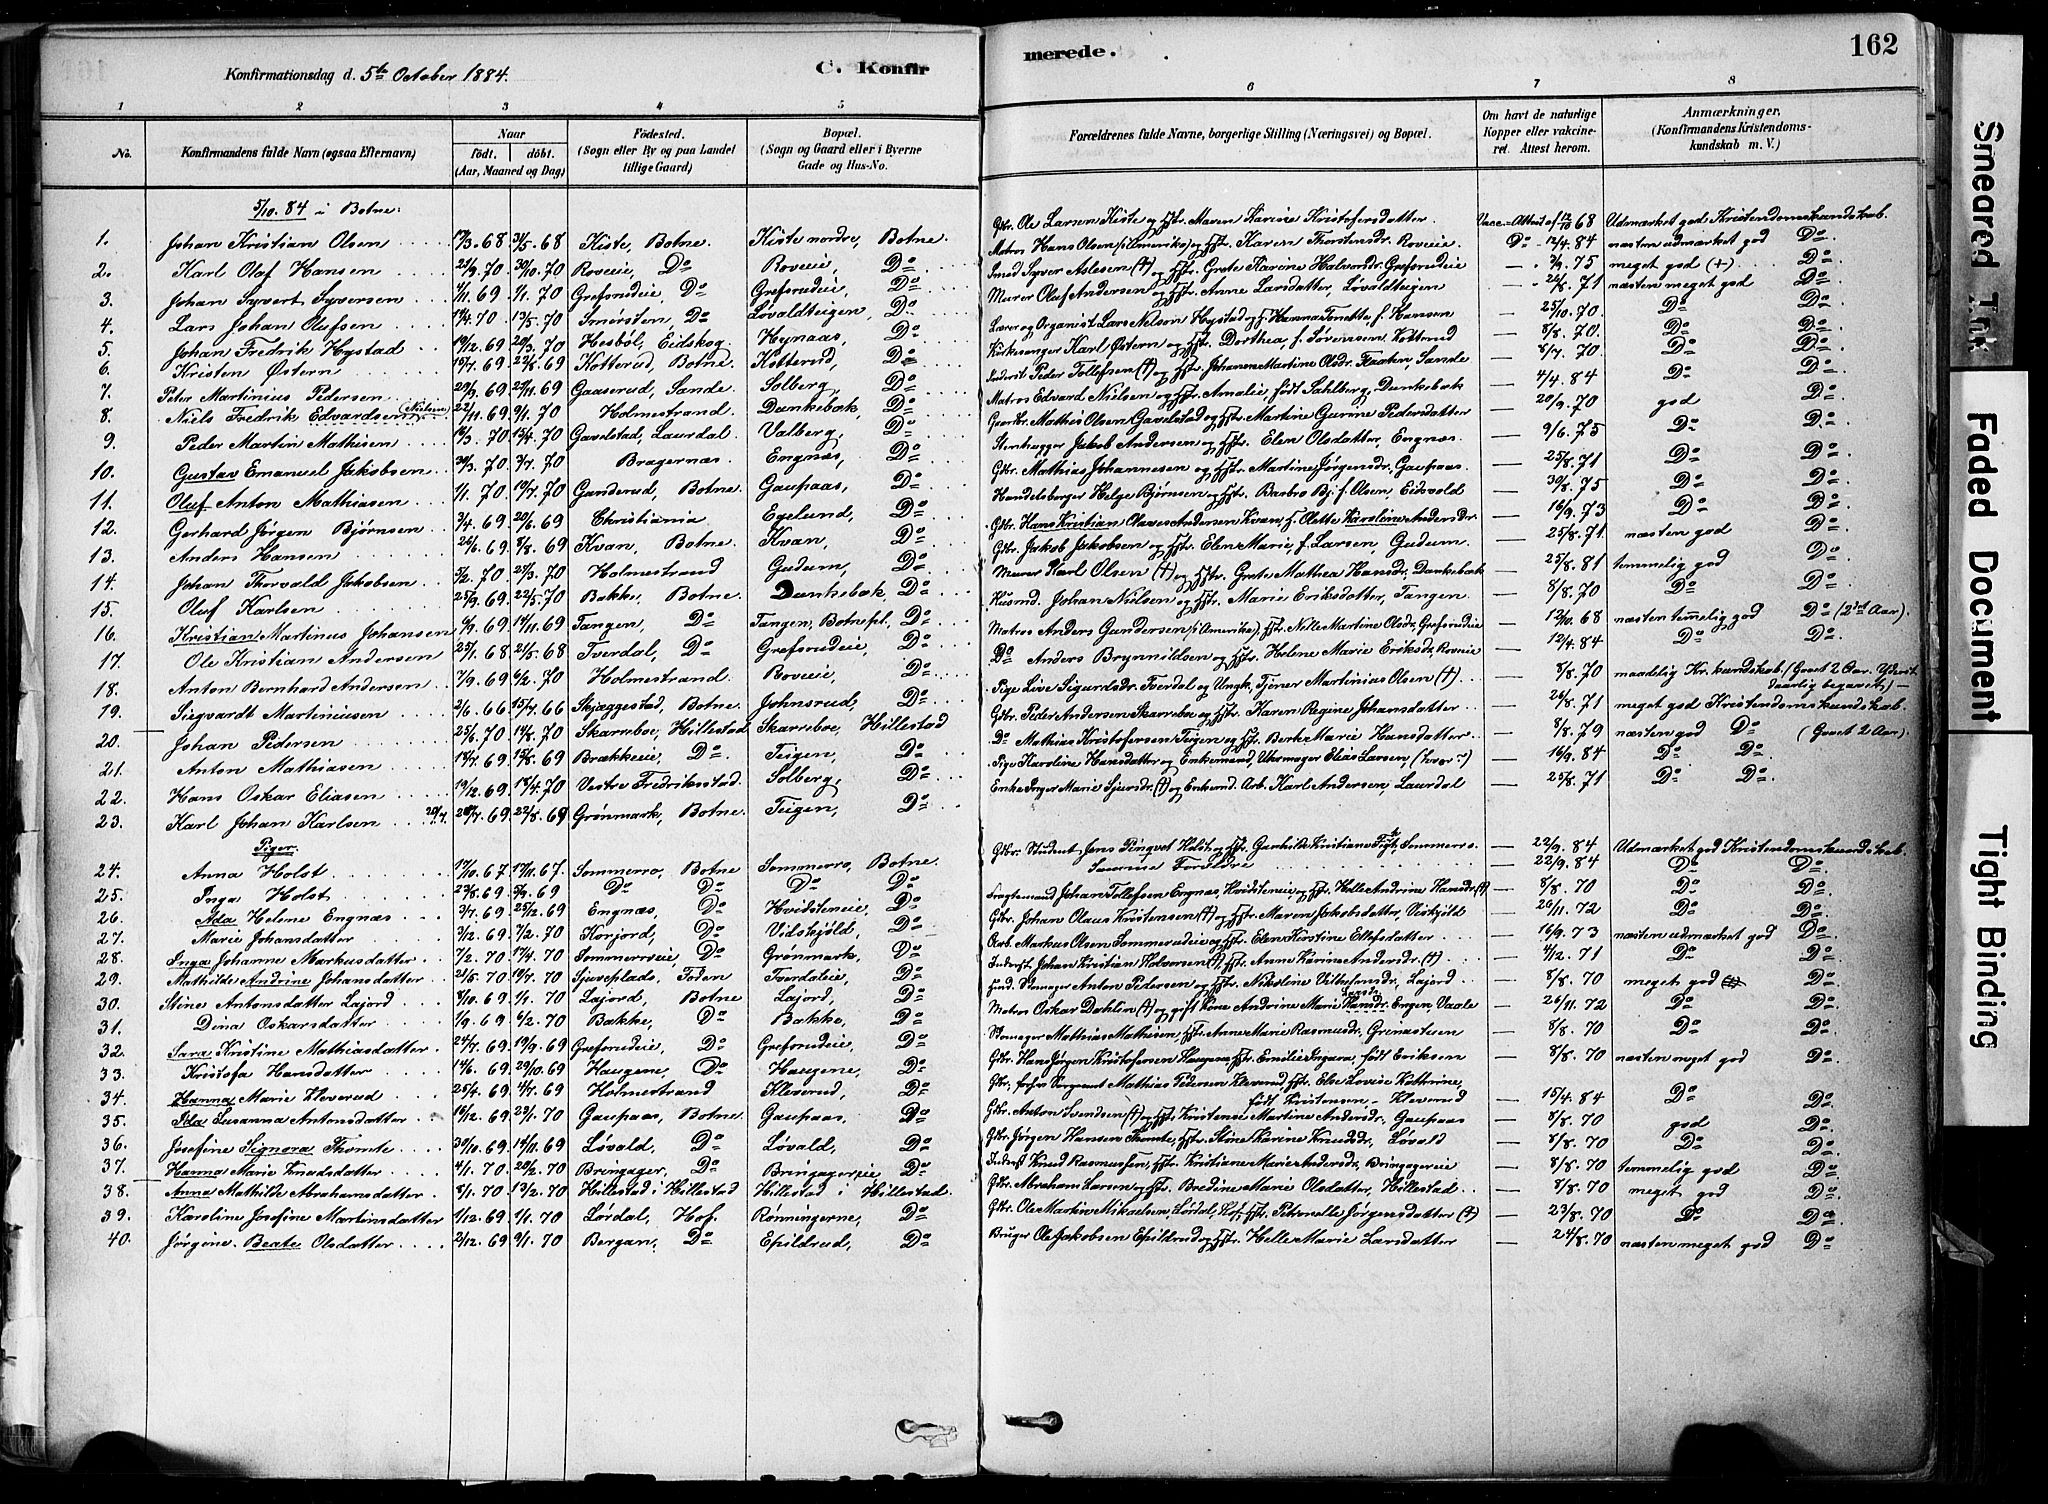 162
Konfirmationsdag d. 5te October 1884.
C. Konfirmerede.
1 2 3 4 5 6 7 8
No. Konfirmandens fulde Navn (ogsaa Efternavn) Naar født. døbt. (Aar, Maaned og Dag) Fødested. (Sogn eller By og paa Landet tillige Gaard) Bopæl. (Sogn og Gaard eller i Byerne Gade og Hus-No. Forældrenes fulde Navne, borgerlige Stilling (Næringsvei) og Bopæl. Om havt de naturlige Kopper eller vakcineret. Attest herom. Anmærkninger. (Konfirmandens Kristendomskundskab m. V.)
5/10. 84 i Botne:
1. Johan Kristian Olsen 68 31/5 68 Kiste, Botne. Kiste nordre, Botne. Gbr. Ole Larsen Kiste og Hstr. Maren Karine Kristofersdatter Vacc.-Attest af 68 Udmærket god Kristendomskundskab.
2. Karl Olaf Hansen 21/9. 70 30/10. 70 Roveie, Do Roveie, Do Matros Hans Olsen (i Amerika) og Hstr. Karen Thorstensdr. Roveie Do 12/4. 84 næsten udmærket god Do
3. Johan Syvert Syversen 69 1/1. 70 Grefsrudeie, Do Grefsrudeie, Do Smed Syver Aslesen (†) og Hstr. Grete Karine Halvorsdr. Grefsrudeie — 3/9. 75 meget god (+) Do
4. Lars Johan Olufsen 70 13/5. 70 Smørsten, Do Løvaldteigen, Do Murer Oluf Andersen og Hstr. Anne Larsdatter, Løvaldteigen — 26/8. 71 næsten meget god Do
5. Johan Fredrik Hystad 19/2. 69 20/3. 70 Hesbøl, Eidskog. Hynaas, Do Lærer og Organist Lars Nelson Hystad og H. Hanna Tomette, f. Hansen — 25/10. 70 Do Do
6. Kristen Østern 15/7. 69 22/8. 69 Kotterud, Botne. Kotterud, Do Kirkesanger Karl Østern og Hstr. Dorthea, f. Sørensen, Kotterud — 8/8. 70. Do Do
7. Peter Martinius Pedersen 29/9. 69 21/11. 69 Gaaserud, Sande. Solberg, Do Inderst Peder Tollefsen (†) og Hstr. Johanne Martine Olsdr. Fraaten, Sande — 8/7. 70 Do Do
8. Niels Fredrik Edvardsen (Nielsen) 22/11. 69 9/1. 70 Holmestrand. Dankebak, Do Matros Edvard Nielsen og Hstr. Amalie, født Sahlberg, Dankebæk — 4/4. 84 Do Do
9. Peder Martin Mathisen 19/3. 70 15/4. 70 Gavelstad, Laurdal. Valberg, Do Gaardbr. Mathis Olsen Gavelstad og Hstr. Martine Gurine Pedersdatter — 20/9. 70 god Do
10. Gustav Emanuel Jakobsen 30/3. 70 3/7. 70 Bragernæs. Engnæs, Do Stenhugger Jakob Andersen og Hstr. Elen Olsdatter, Engnæs — 9/6. 75 Do Do
11. Oluf Anton Mathiasen 1/1. 70 19/7. 70 Ganderud, Botne. Gaupaas, Do Gbr. Mathias Johannesen og Hstr. Martine Jørgensdr. Gaupaas. — 25/8. 71 Do Do
12. Gerhard Jørgen Bjørnsen 3/4. 69 20/6. 69 Christiania Egelund, Do Handelsborger Helge Bjørnsen og Hstr. Barbro Bj. f. Olsen, Eidsvold — 30/8. 75 Do Do
13. Anders Hansen 26/6. 69 8/8. 69 Kvan, Botne. Kvan, Do Gbr. Hans Kristian Olaves Andersen Kvan, H. Olette Karoline Andersdr. — 16/9. 73 Do Do
14. Johan Thorvald Jakobsen 5/2. 70 27/3. 70 Holmestrand Gudum, Do Gbr. Jakob Jakobsen og Hstr. Elen Marie, f. Larsen, Gudum. — 25/8. 71 næsten god Do
15. Oluf Karlsen 25/9. 69 22/5. 70 Bakke, Botne Dankebak, Do Murer Karl Olsen (†) og Hstr. Grete Mathea Hansdr. Dankebæk — 25/8. 81 temmelig god Do
16. Kristian Martinus Johansen 6/9. 69 14/11. 69 Tangen, Do Tangen, Botnepl. Do Husmd. Johan Nielsen og Hstr. Marie Eriksdatter, Tangen — 8/8. 70 Do Do
17. Ole Kristian Andersen 22/1. 68 21/5. 68 Tverdal, Do Grefsrudeie, Do Matros Anders Gundersen (i Amerika), Hstr. Nille Martine Olsdr. Grefsrudeie — 12/10. 68 næsten temmelig god Do (2det Aar).
18. Anton Bernhard Andersen 7/9. 69 6/2. 70 Holmestrand. Roveie, Do Do Anders Brynnildsen og Hstr. Helene Marie Eriksdr. Roveie — 12/4. 84 Do Do
19. Siegvardt Martiniusen 2/6. 66 15/7. 66 Skjæggestad, Botne. Johnsrud, Do Pige Live Sigurdsdr. Tverdal og Ungk. Tjener Martinius Olsen (†) — 8/8. 70 maadelig Kr. kundskab. (Gaaet 2 Aar. Yderst daarlig begavet.) —
20. Johan Pedersen 25/6. 70 14/8. 70 Skarreboe, Hillestad Skarreboe, Hillestad Gbr. Peder Andersen Skarreboe og Hstr. Karen Regine Johansdatter — 26/8. 71 meget god Kristendomskundskab.
21. Anton Mathiasen 18/7. 69 15/8. 69 Brækkeeie, Do. Teigen, Do Do Mathias Kristofersen Teigen og Hstr. Berte Marie Hansdatter — 8/7. 79 næsten god Do (Gaaet 2 Aar).
22. Hans Oskar Eliasen 19/12. 69 18/4. 70 Vestre Fredriksstad. Solberg, Do Pige Karoline Hansdatter og Enkemand, Uhrmager Elias Larsen, — 16/9. 84 Do Do
23. Karl Johan Karlsen 20/7. 69 22/8. 69 Grønmark, Botne. Teigen, Do Enke Inger Marie Sjursdr. (†) og Enkemd. Arb. Karl Andersen, Laurdal — 25/8. 71 Do Do
Piger.
24. Anna Holst 17/10. 67 17/11. 67. Sommerro, Botne Sommerro, Botne. Gbr. Student Jens Pinqvet Holst og Hstr. Gunhilde Kristiane Sommerro — 22/9. 84 Udmærket god Kristendomskundskab.
25. Inga Holst 23/8. 69 5/9. 69 Do Do Do Do Samme Forældre — 22/9. 84 Do Do
26. Ada Helene Engnæs 3/7. 69 25/12. 69 Engnæs, Do Hvidsteneie, Do Fragtemand Johan Tollefsen Engnæs, Hvidsteneie og Hstr. Helle Andrine Hansdr. (†) — 8/8. 70 Do Do
27. Marie Johansdatter 3/12. 69 7/2. 70 Korjord, Do Vidskjøld, Do Gbr. Johan Olaus Kristensen (†) og Hstr. Maren Jakobsdatter, Viskjöld — 26/11. 72 Do Do
28. Inga Johanne Markusdatter 7/2. 70 17/4. 70 Sommerroeie, Do Grønmark, Do Arb. Markus Olsen Sommerroeie og Hstr. Elen Kirstine Ellefsdatter — 16/9. 73 næsten udmærket god Do
29. Mathilde Andrine Johansdatter 21/5. 70 70 Sjueplads, Foden Tverdaleie, Do Inderst Johan Kristian Halvorsen (†), Hstr. Anne Karine Andersdr. (†) — 4/12. 71 Do Do
30. Stine Antonsdatter Lajord 8/10. 69 1/1. 70 Lajord, Botne Lajord, Do Anton Pedersen og Hstr. Nikoline Vilhelmsdr. Lajord — 8/8. 70 meget god Do
31. Dina Oskarsdatter 1/9. 69 6/2. 70 Bakke, Do Bakke, Do Matros Oskar Dahlin (†) og gift Kone Andrine Marie Hansdr. Engen, Vaale — 26/11. 72 Do Do
32. Sara Kristine Mathiasdatter 24/7. 69 19/9. 69 Grefsrudeie, Do Grefsrudeie, Do Skomager Mathias Mathisen, Hstr. Anne Marie Rasmusdr., — 8/8. 70 Do Do
33. Kristofa Hansdatter 14/6. 69 29/10. 69 Haugene, Do Haugene, Do Gbr. Hans Jørgen Kristofersen Haugene, Hstr. Emilie Ingara, født Eriksen — 8/8. 70 næsten meget god Do
34. Hanna Marie Kleverud 25/4. 69 4/7. 69 Holmestrand Kleverud, Do Gbr., forhv. Sergeant Mathias Pedersen Kleverud, Hstr. Else Lovise Kathrine, født Kristensen — Kleverud — 15/4. 84 Do Do
35. Ida Susanna Antonsdatter 16/12. 69 23/1. 70 Gaupaas, Botne. Gaupaas, Do Gbr. Anton Svendsen (†) og Hstr. Kristense Martine Andersdr., Gaupaas — 8/8. 70 god Do
36. Josefine Signora Thomte 30/10. 69 14/11. 69 Løvald, Do Løvald, Do Gbr. Jørgen Hansen Thomte, Hstr. Stine Karine Knudsdr., Løvald — 8/8. 70 Do Do
37. Hanna Marie Knudsdatter 4/1. 70 20/2. 70 Bringager, Do Bringagereie, Do Inderst Knud Rasmussen, Hstr. Kristiane Marie Andersdr., Bringagereie — 8/8. 70 temmelig god Do
38. Anna Mathilde Abrahamsdatter 8/1. 70 13/2. 70 Hillestad i Hillestad Hillestad i Hillestad. Gbr. Abraham Larsen og Hstr. Bredine Marie Olsdatter, Hillestad — 8/8. 70 meget god Do
39. Karoline Josefine Martinsdatter 1/12. 69 1/1. 70 Lørdal, Hof. Rønningerne, Do Gbr. Ole Martin Mikaelsen, Lørdal, Hof, Hstr. Petronelle Jørgensdatter (†) — 23/8. 70 Do Do
40. Jørgine Beate Olsdatter 2/12. 69 9/1. 70 Bergan, Do Epildrud, Do Bruger Ole Jakobsen Epildrud og Hstr. Helle Marie Larsdatter — 24/8. 70 næsten meget god Do
Smeared Ink
Faded Document
Tight Binding